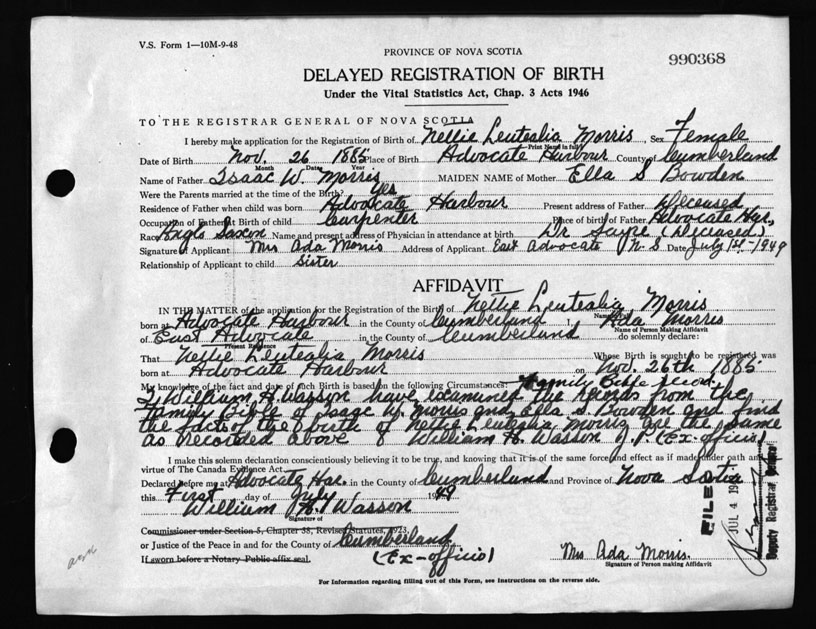 V.S. Form 1—10M-9-48
PROVINCE OF NOVA SCOTIA
990368
DELAYED REGISTRATION OF BIRTH
Under the Vital Statistics Act, Chap. 3 Acts 1946
TO THE REGISTRAR GENERAL OF NOVA SCOTIA
I hereby make application for the Registration of Birth of Nellie Leutealia Morris, Sex Female
Print Name in full
Date of Birth Nov. 26 1885 Place of Birth Advocate Harbour County of Cumberland
Month Date Year
Name of Father Isaac W. Morris MAIDEN NAME of Mother Ella S Bowden
Were the Parents married at the time of the Birth? Yes
Residence of Father when child was born Advocate Harbour Present address of Father Deceased
Occupation of Father at Birth of child Carpenter Place of birth of Father Advocate Hgr,
Race Anglo Saxon Name and present address of Physician in attendance at birth Dr Suype (Deceased)
Signature of Applicant Mrs Ada Morris Address of Applicant East Advocate N S Date July 1st-1949
Relationship of Applicant to child Sister
AFFIDAVIT
IN THE MATTER of the application for the Registration of the Birth of Nettie Leutealia Morris
born at Advocate Harbour in the County of Cumberland I Ada Morris
Name of Person Making Affidavit
of East Advocate in the County of Cumberland do solemnly declare:
Present Residence
That Nettie Leutealia Morris Whose Birth is sought to be registered was
born at Advocate Harbour on Nov. 26th 1885
My knowledge of the fact and date of such Birth is based on the following Circumstances: Family Bible record.
I, William H. Wasson have examined the records from the
Family Bible of Isaac W. Morris and Ella S. Bowden and find
the facts of the birth of Nettie Leutealia Morris are the same
as recorded above William H. Wasson J.P. (Ex-officio)
I make this solemn declaration conscientiously believing it to be true, and knowing that it is of the same force and effect as if made under oath and
virtue of The Canada Evidence Act.
Declared before me at Advocate Har. in the County of Cumberland and Province of Nova Scotia
this First day of July 1949
William H. Wasson
Signature of
Commissioner under Section 5, Chapter 38, Revised Statutes, 1923.
or Justice of the Peace in and for the County of Cumberland
(Ex-officio)
If sworn before a Notary Public affix seal.
Mrs Ada Morris.
Signature of Person making Affidavit
For Information regarding filling out of this Form, see Instructions on the reverse side.
FILED
JUL 4 1949
Deputy Registrar General